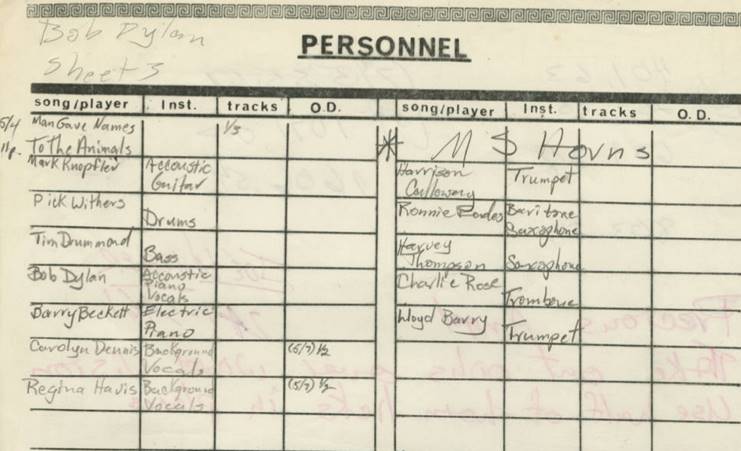 Bob Dylan
Sheet 3
PERSONNEL
song/player Inst. tracks O.D.
5/4 Man Gave Names 1/3
11p. To The Animals
Mark Knopfler Accoustic
Guitar
Pick Withers
Drums
Tim Drummond
Bass
Bob Dylan Accoustic
Piano
Vocals
Barry Beckett Electric
Piano
Carolyn Dennis Background (5/7) 1/2
Vocals
Regina Havis Background (5/7) 1/2
Vocals
song/player Inst. tracks O.D.
* M S Horns
Harrison Trumpet
Calloway
Ronnie Eades Baritone
Saxophone
Harvey
Thompson Saxophone
Charlie Rose
Trombone
Lloyd Barry
Trumpet